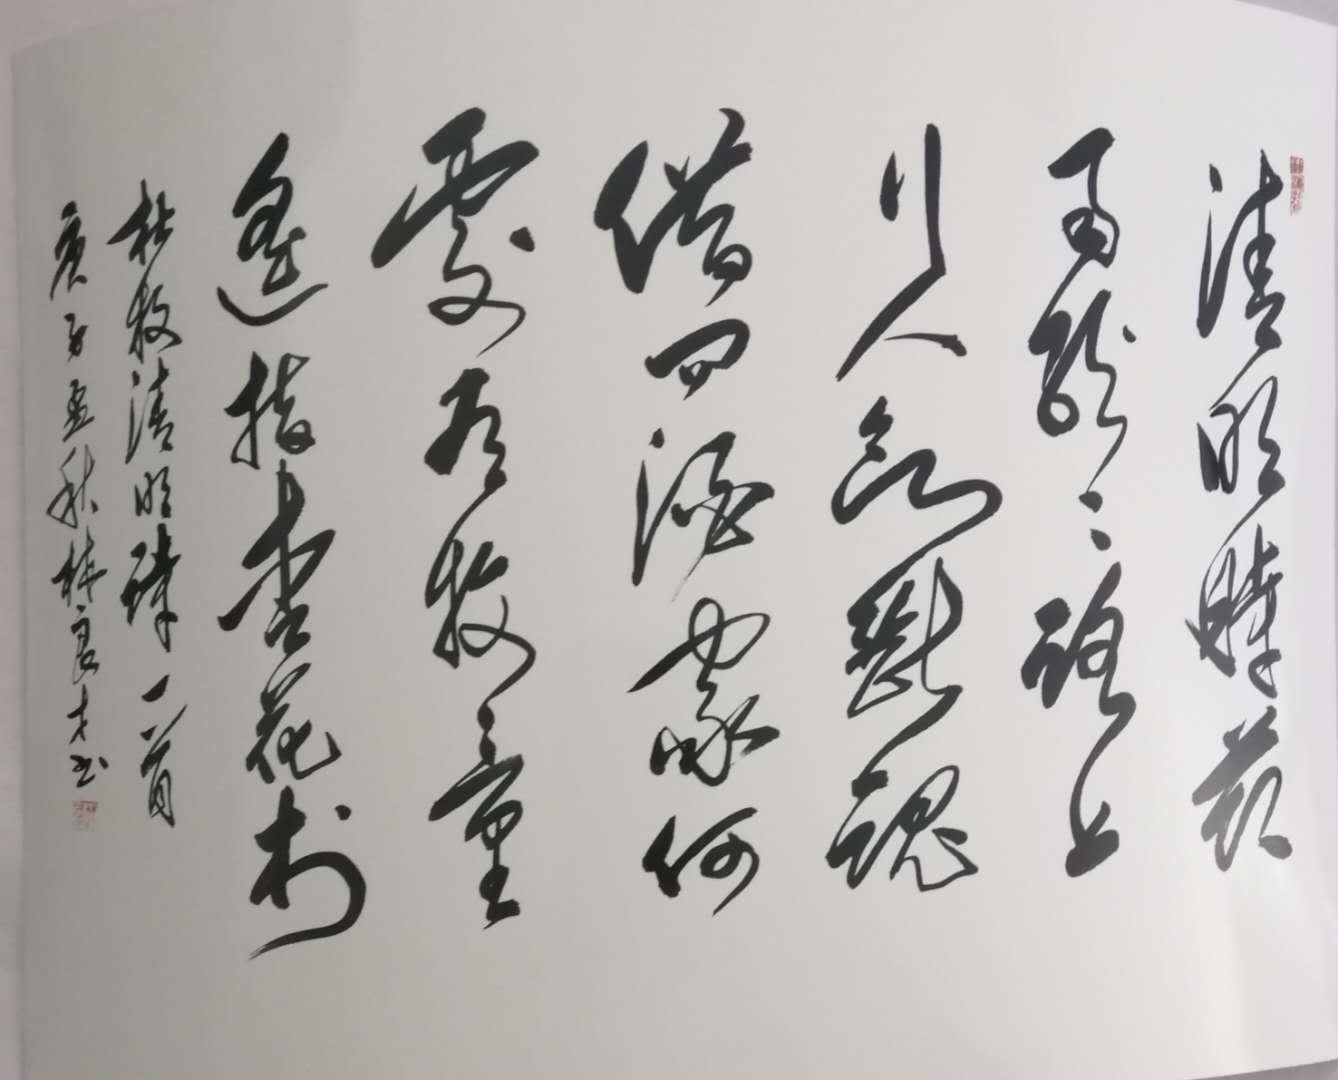 清明時節
雨紛〻路上
行人欲斷魂
借问酒家何
處有牧童
遙指杏花村
杜牧清明詩一首
庚子孟秋林良才书